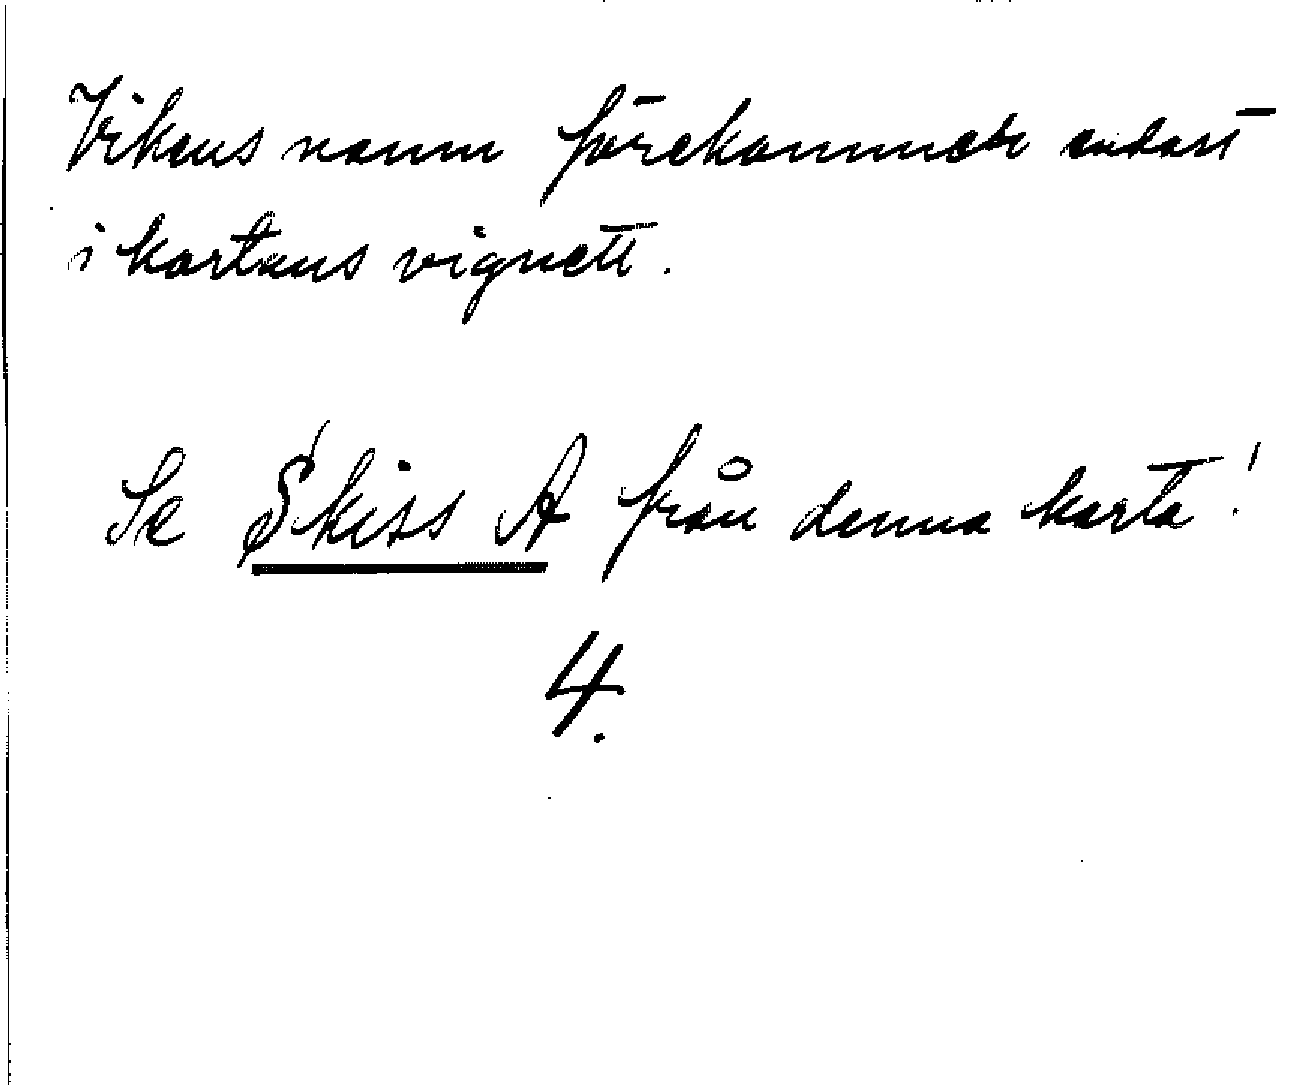 Vikens namn förekommer endast
i kartans vignett.
Se Skiss A från denna karta!
4.